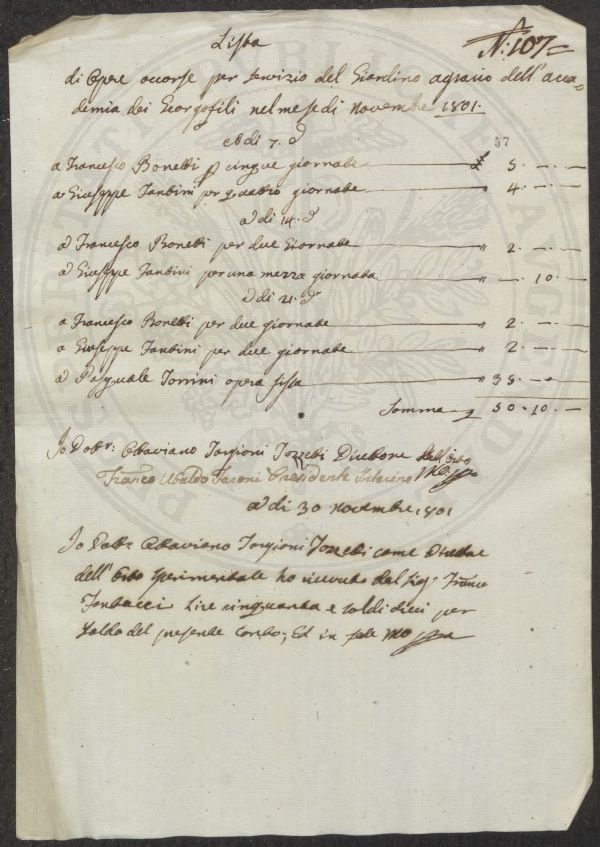 Lista
N.° 107
di Opere occorse per servizio del Giardino agrario dell'acca=
demia dei Georgofili nel mese di Novembre 1801.
a di 7. d°
37
a Francesco Bonetti p cinque giornate £ 5. — . —
a Giuseppe Tantini per quattro giornate " 4. — . —
a di 14. d°
a Francesco Bonetti per due Giornate " 2. — . —
a Giuseppe Tantini per una mezza giornata " — . 10. —
a di 21. d°
a Francesco Bonetti per due giornate " 2. — . —
a Giuseppe Tantini per due giornate " 2. — . —
a Pasquale Torrini opera fissa " 35. — . —
Somma 50. 10. —
Io Dott.r Ottaviano Targioni Tozzetti Direttore dell'Orto
Franco Ubaldo Pasoni Presidente Interino
a di 30 Novembre 1801
Io Dott.r Ottaviano Targioni Tozzetti come Direttore
dell'Orto sperimentale ho ricevuto dal Sig.e Franco
Tantucci Lire cinquanta e soldi dieci per
saldo del presente Conto; Ed in fede mo ppa